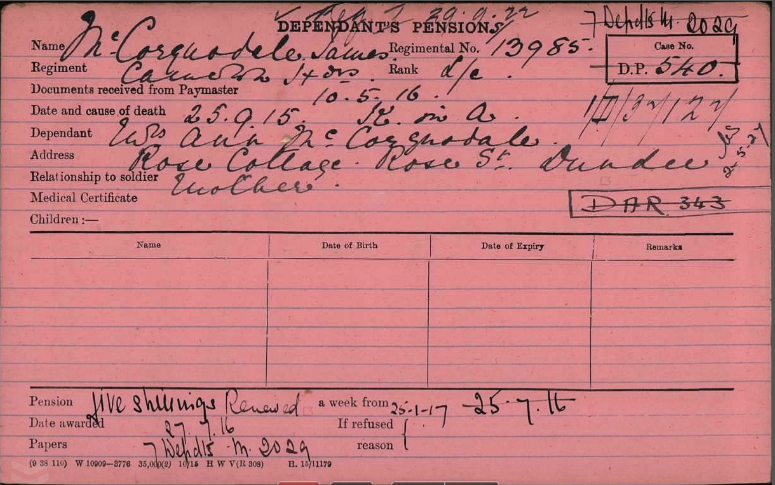 29.9.22
DEPENDANT'S PENSIONS
7 Depd/s M. 2029
Name McCorquodale, James. Regimental No. 13985.
Case No.
D.P. 540.
Regiment Cameron Hdrs. Rank L/c.
Documents received from Paymaster 10.5.16.
Date and cause of death 25.9.15. K. in A.
Dependant Mrs Ann McCorquodale.
Address Rose Cottage. Rose St. Dundee
Relationship to soldier Mother.
Medical Certificate
DAR 343
Children :—
Name Date of Birth Date of Expiry Remarks
Pension five shillings Renewed a week from 25-1-17 25.7.16
Date awarded 27.7.16 If refused
Papers 7 Depd/s M. 2029 reason
(9 38 110) W 10909—3776 35,000(2) 10/15 H W V(R 309) H. 15/11179